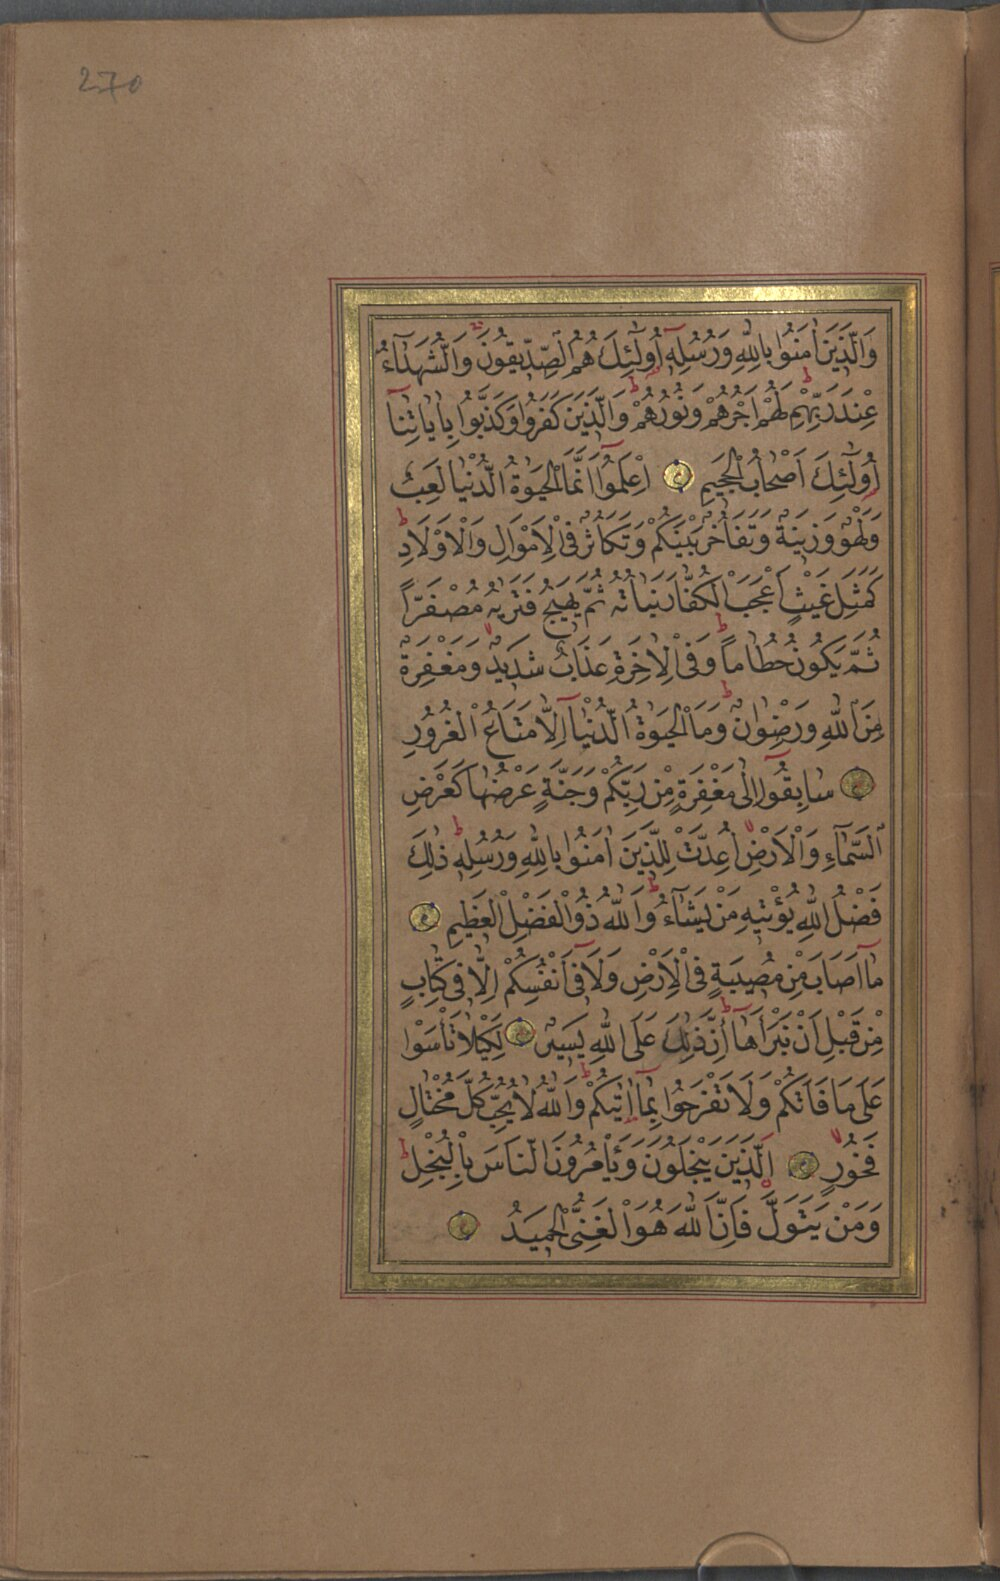 270
وَالَّذَيِنَ اٰمَنُوا بِاللّٰهِ وَرُسُلِهِٓ اُولٰٓئِكَ هُمُ الصِّدّ۪يقُونَ وَالشُّهَدَٓاءُ
عِنْدَ رَبِّهِمْ لَهُمْ اَجْرُهُمْ وَنُورُهُمْ وَالَّذ۪ينَ كَفَرُوا وَكَذَّبُوا بِاٰيَاتِنَٓا
اُولٰٓئِكَ اَصْحَابُ الْجَح۪يمِ اِعْلَمُٓوا اَنَّمَا الْحَيٰوةُ الدُّنْيَا لَعِبٌ
وَلَهْوٌ وَز۪ينَةٌ وَتَفَاخُرٌ بَيْنَكُمْ وَتَكَاثُرٌ فِى الْاَمْوَالِ وَالْاَوْلَادِ
كَمَثَلِ غَيْثٍ اَعْجَبَ الْكُفَّارَ نَبَاتُهُ ثُمَّ يَه۪يجُ فَتَرٰيهُ مُصْفَرًّا
ثُمَّ يَكُونُ حُطَامًا وَفِى الْاٰخِرَةِ عَذَابٌ شَد۪يدٌ وَمَغْفِرَةٌ
مِنَ اللّٰهِ وَرِضْوَانٌ وَمَا الْحَيٰوةُ الدُّنْيَٓا اِلَّا مَتَاعُ الْغُرُورِ
سَابِقُٓوا اِلٰى مَغْفِرَةٍ مِنْ رَبِّكُمْ وَجَنَّةٍ عَرْضُهَا كَعَرْضِ
السَّمَٓاءِ وَالْاَرْضِ اُعِدَّتْ لِلَّذ۪ينَ اٰمَنُوا بِاللّٰهِ وَرُسُلِه۪ ذٰلِكَ
فَضْلُ اللّٰهِ يُؤْت۪يهِ مَنْ يَشَٓاءُ وَاللّٰهُ ذُو الْفَضْلِ الْعَظ۪يمِ
مَٓا اَصَابَ مِنْ مُص۪يبَةٍ فِى الْاَرْضِ وَلَا ف۪ٓى اَنْفُسِكُمْ اِلَّا ف۪ى كِتَابٍ
مِنْ قَبْلِ اَنْ نَبْرَاَهَٓا اِنَّ ذٰلِكَ عَلَى اللّٰهِ يَس۪يرٌ لِكَيْلَا تَأْسَوْا
عَلٰى مَا فَاتَكُمْ وَلَا تَفْرَحُوا بِمَٓا اٰتٰيكُمْ وَاللّٰهُ لَا يُحِبُّ كُلَّ مُخْتَالٍ
فَخُورٍ اَلَّذ۪ينَ يَبْخَلُونَ وَيَأْمُرُونَ النَّاسَ بِالْبُخْلِ
وَمَنْ يَتَوَلَّ فَاِنَّ اللّٰهَ هُوَ الْغَنِىُّ الْحَم۪يدُ